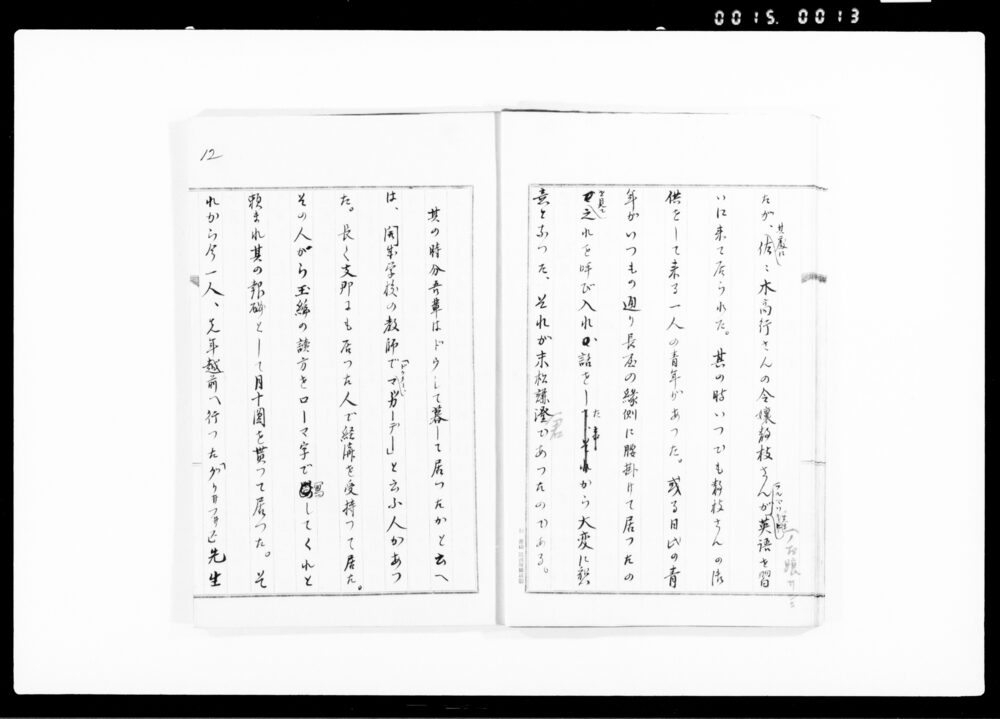 0015. 0013
たが、其處に佐々木高行さんの令嬢静枝さんが英語を習
いに来て居られた。其の時いつでも静枝さんの御
供をして来る一人の青年があつた。或る日此の青
年がいつもの通り長屋の縁側に腰掛けて居つたの
を見て之れを呼び入れ話をした事から大変に懇
意となつた、それが末松謙澄君であつたのである。
12
其の時分吾輩はドウして暮して居つたかと云へ
ば、開成学校の教師で「ドクトル」マガーデー」と云ふ人があつ
た。長く支那にも居つた人で経済を受持つて居た。
その人から玉篇の読方をローマ字で寫してくれと
頼まれ其の報酬として月十圓を貰つて居つた。そ
れから今一人、先年越前へ行つた「グリフィス」先生